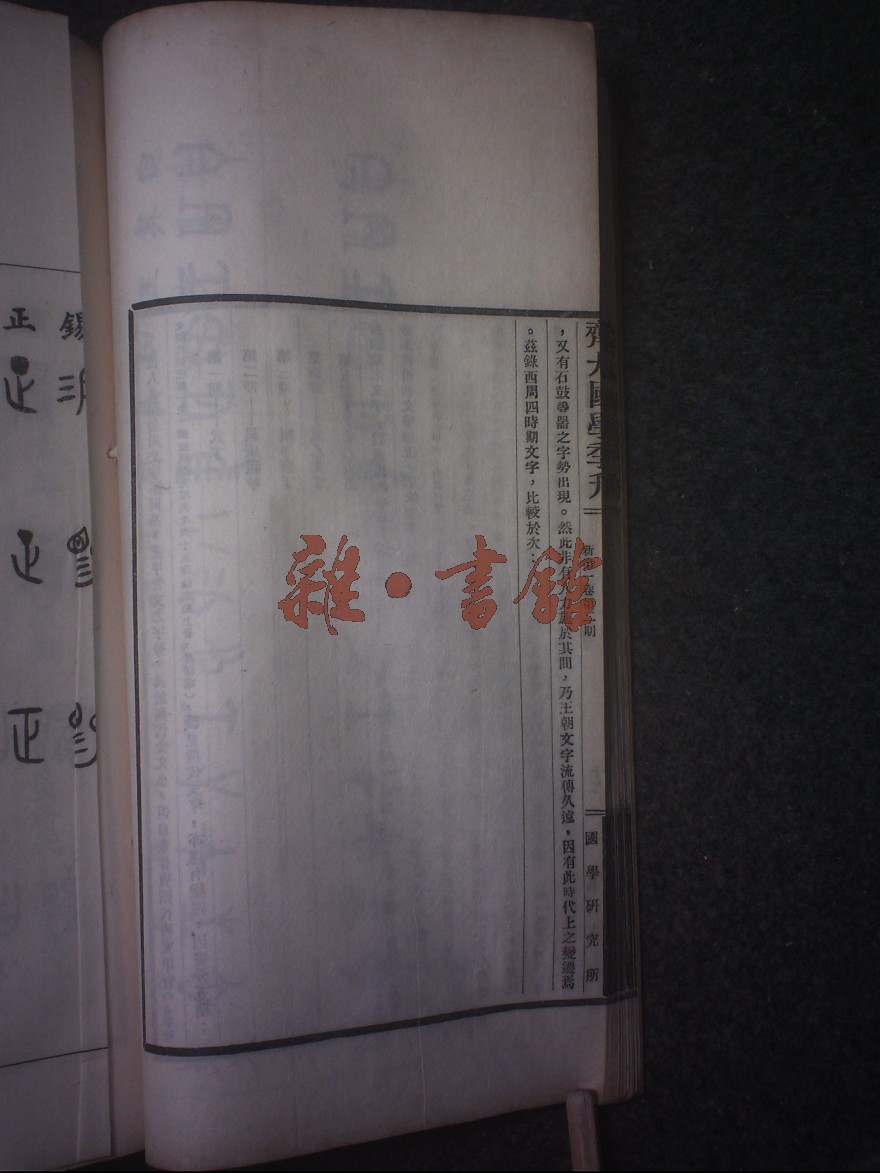 齊大國學季刋
新第一卷第二期
國學研究所
，又有石鼓尋器之字勢出現。然此非有人力於其間，乃王朝文字流傳久遠，因有此時代上之變遷焉
。茲錄西周四時期文字，比較於次：
雜·書館
錫
正